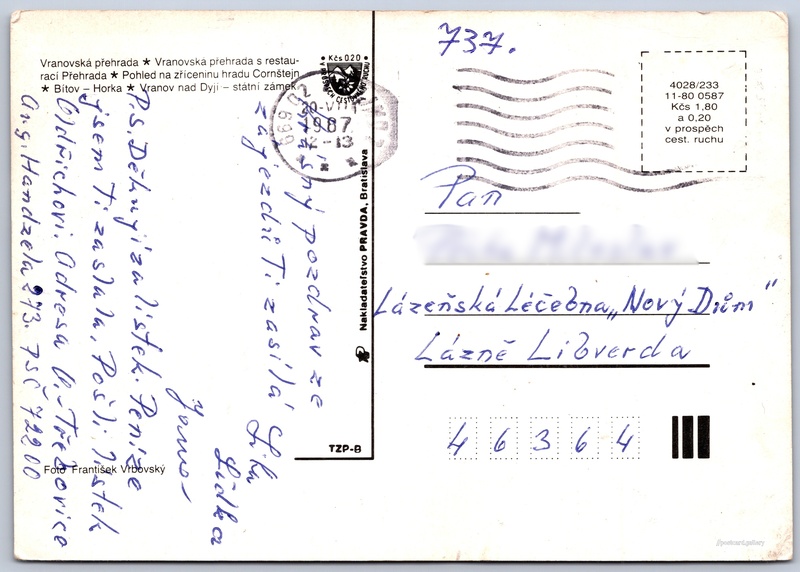 Vranovská přehrada ★ Vranovská přehrada s restau-
rací Přehrada ★ Pohled na zříceninu hradu Cornštejn
★ Bítov – Horka ★ Vranov nad Dyjí – státní zámek
Krásný pozdrav ze
zájezdů Ti zasílá
Lída
Jano
P.S. Děkuji za lístek. Peníze
jsem Ti zaslala. Pošli lístek
Oldřichovi Adresa O.-Třebovice
Aug. Handzela 273. PSČ 722 00
Foto František Vrbovský
Kčs 0,20
669 02
1987
-13
Nakladateľstvo PRAVDA, Bratislava
TZP-B
737.
4028/233
11-80 0587
Kčs 1,80
a 0,20
v prospěch
cest. ruchu
Pan
Lázeňská Léčebna „Nový Dům"
Lázně Libverda
46364